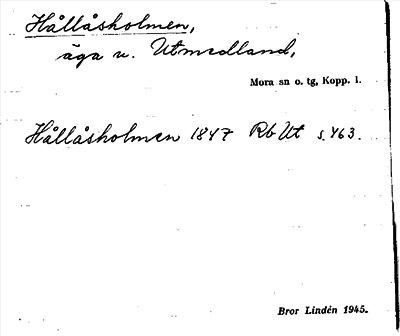 Hållåsholmen,
äga u. Utmedland,
Mora sn o. tg, Kopp. l.
Hållåsholmen 1847 Rb Ut s. 463.
Bror Lindén 1945.